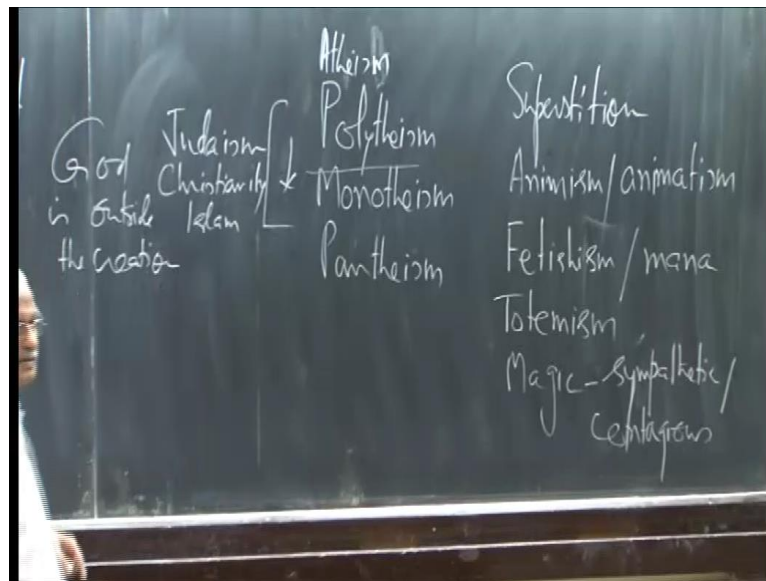 God
is outside
the creation
Judaism
Christianity
Islam
Atheism
Polytheism
Monotheism
Pantheism
Superstition
Animism/animatism
Fetishism/mana
Totemism
Magic-sympathetic/